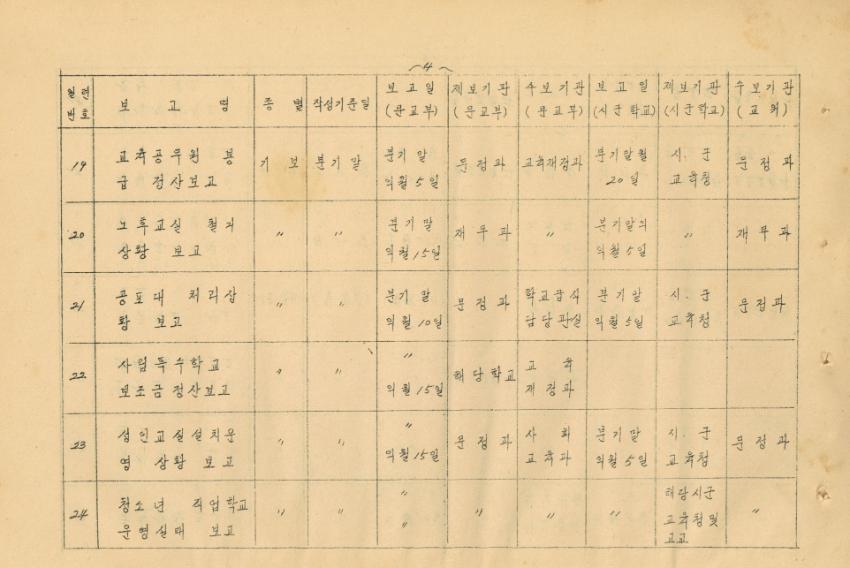 ~4~
일련 번호 | 보 고 명 | 종 별 | 작성기준일 | 보고일 (문교부) | 제보기관 (문교부) | 수보기관 (문교부) | 보고일 (시군학교) | 제보기관 (시군학교) | 수보기관 (교위)
19 | 교육공무원 봉급 정산보고 | 기보 | 분기말 | 분기말 익월5일 | 문정과 | 교육재정과 | 분기말월 20일 | 시.군 교육청 | 문정과
20 | 노후교실 철거 상황 보고 | 〃 | 〃 | 분기말 익월15일 | 재무과 | 〃 | 분기말의 익월5일 | 〃 | 재무과
21 | 공포대 처리상황 보고 | 〃 | 〃 | 분기말 익월10일 | 문정과 | 학교급식 담당관실 | 분기말 익월5일 | 시.군 교육청 | 문정과
22 | 사립특수학교 보조금정산보고 | 〃 | 〃 | 〃 익월15일 | 해당학교 | 교육 재정과
23 | 성인교실설치운영 상황 보고 | 〃 | 〃 | 〃 익월15일 | 문정과 | 사회 교육과 | 분기말 익월5일 | 시.군 교육청 | 문정과
24 | 청소년 직업학교 운영실태 보고 | 〃 | 〃 | 〃 〃 | 〃 | 〃 | 〃 | 해당시군 교육청및 고교 | 〃